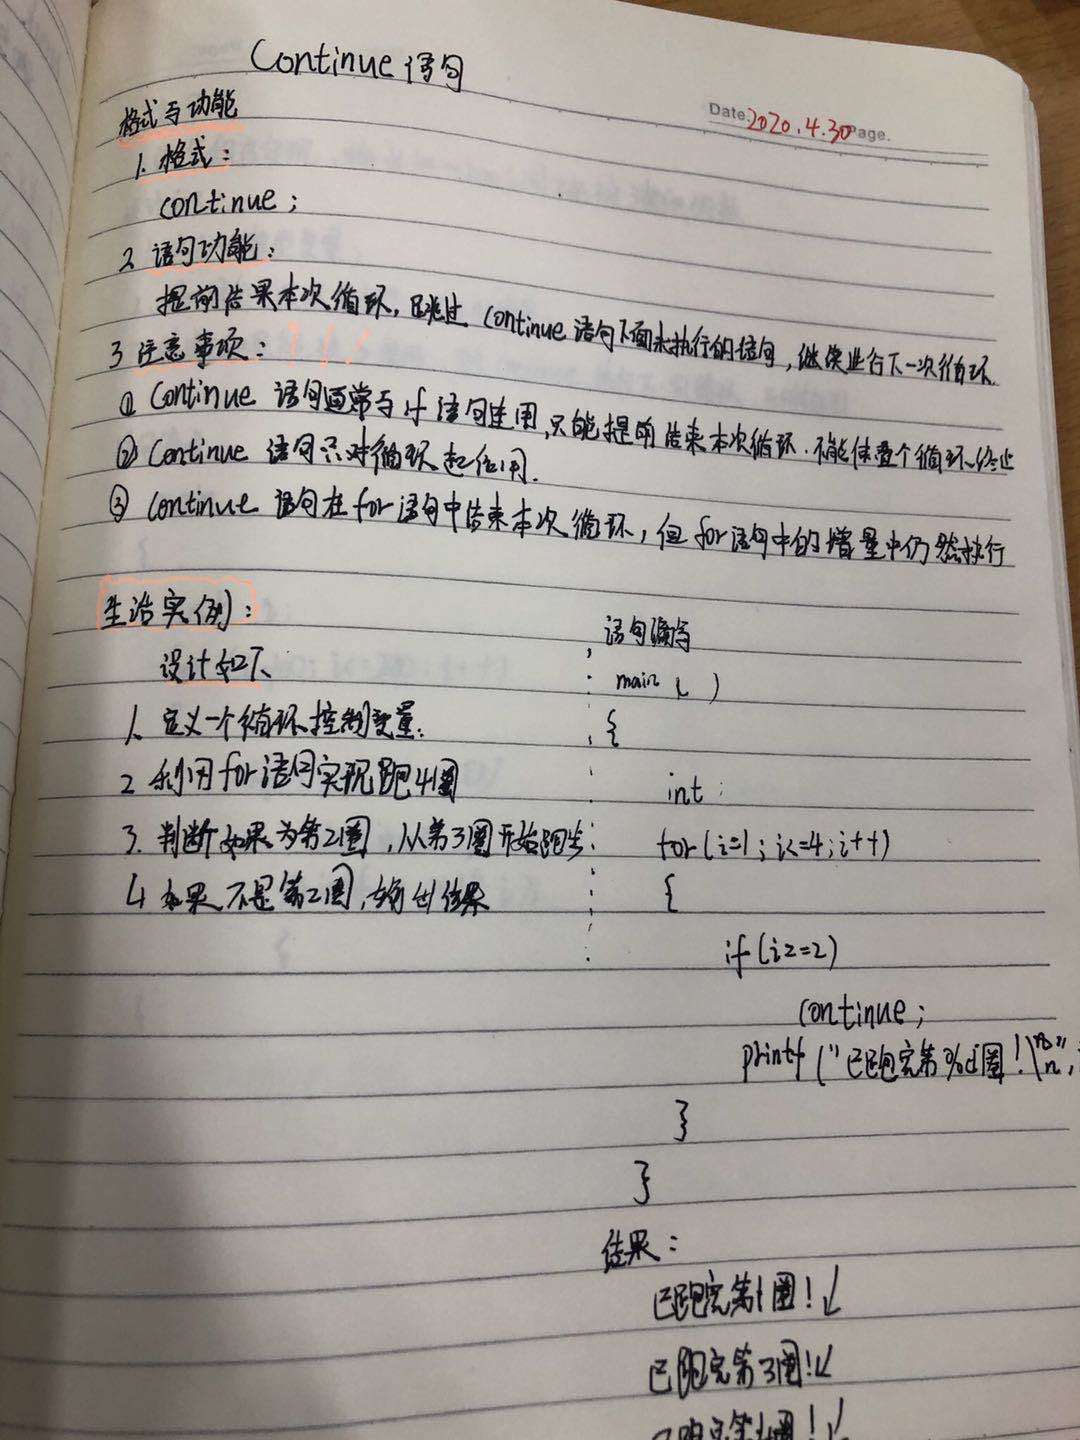 Continue 语句
Date. 2020.4.30 Page.
格式与功能
1. 格式：
continue；
2 语句功能：
提前结果本次循环，跳过 continue 语句下面未执行的语句，继续进行下一次循环
3 注意事项：
① Continue 语句通常与 if 语句连用，只能提前结束本次循环．不能使整个循环终止
② Continue 语句只对循环起作用．
③ continue 语句在 for 语句中结束本次循环，但 for 语句中的增量中仍然执行
生活实例：
设计如下
1、定义一个循环控制变量．
2 利用 for 语句实现跑4圈
3．判断如果为第2圈，从第3圈开始跑步
4 如果不是第2圈，输出结果
语句编写
main ( )
{
int
for (i=1；i<=4；i++)
{
if (i==2)
continue；
printf ("已跑完第%d圈！\n",
}
}
结果：
已跑完第1圈！↙
已跑完第3圈！↙
已跑完第4圈！↙